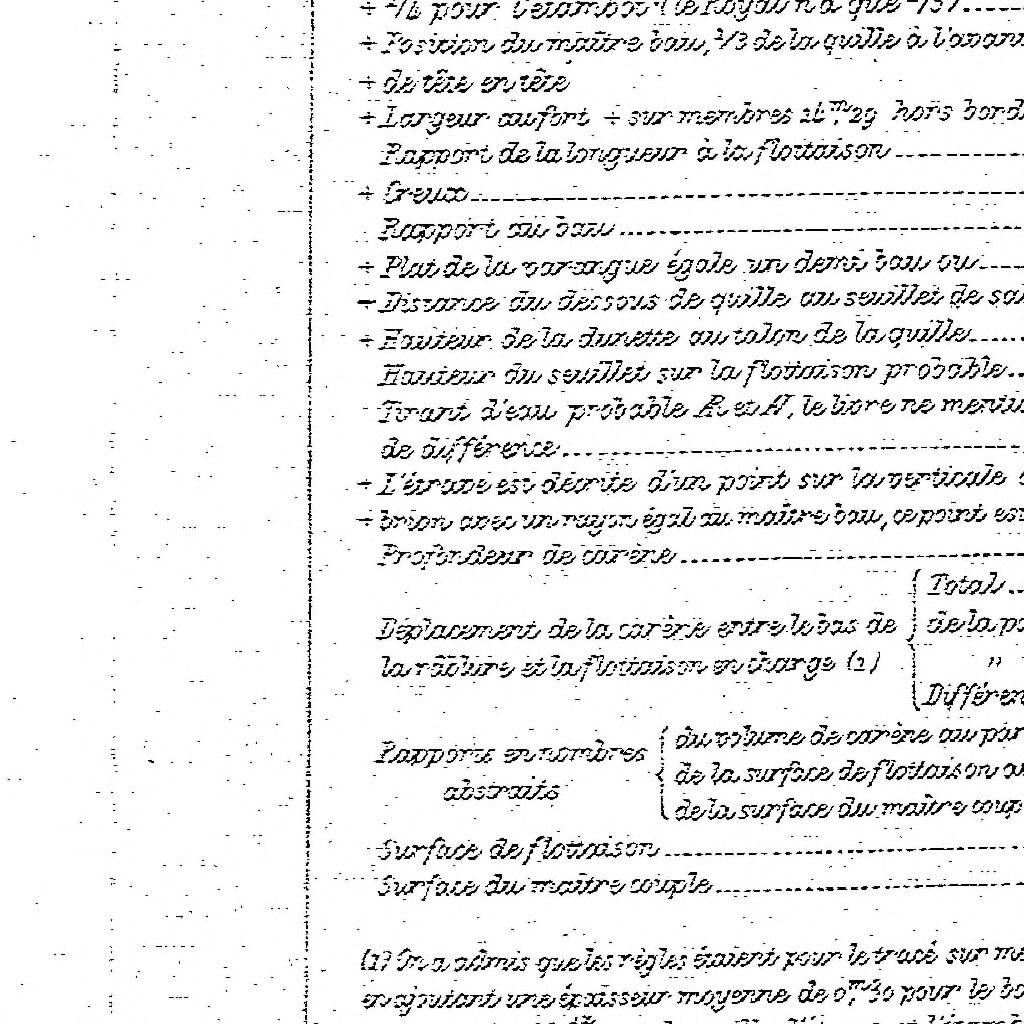 pour l'étambot (le Royal n'a que
÷ Position du maître bau, 2/3 de la quille à l'avant
÷ de tête en tête
÷ Largeur au fort ÷ sur membres 14m,29 hors bord
Rapport de la longueur à la flottaison
÷ Creux
Rapport au bau
÷ Plat de la varangue égale un demi bau ou
÷ Distance du dessous de quille au seuillet de
÷ Hauteur de la dunette au talon de la quille
Hauteur du seuillet sur la flottaison probable
Tirant d'eau probable Æ et N, le livre ne
de différence
÷ L'étrave est décrite d'un point sur la verticale
÷ brion avec un rayon égal au maître bau, ce point est
Profondeur de carène
Total
Déplacement de la carène entre le bas de
de la
la râblure et la flottaison en charge (1)
"
Différen
du volume de carène au par
Rapports en nombres
de la surface de flottaison
abstraits
de la surface du maître coup
Surface de flottaison
Surface du maître couple
(1) On a admis que les règles étaient pour le tracé sur
en ajoutant une épaisseur moyenne de 0m,30 pour le